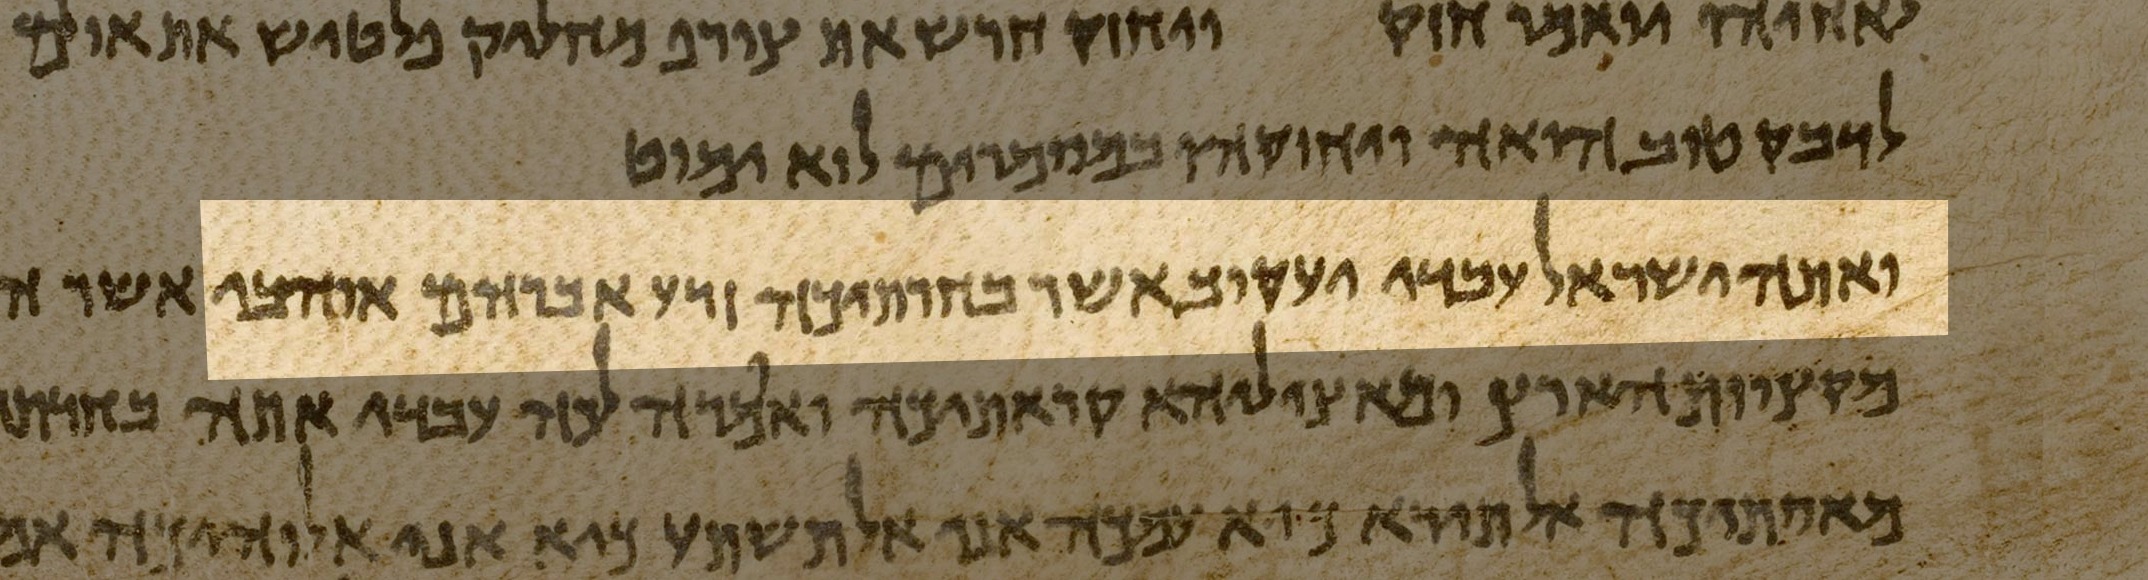 לאחיהו יואמר חזק ויחזק חרש את צורף מחליק פלטיש את אולם
לדבק טוב הואה ויחזקהו במסמרים לוא ימוט
ואתה ישראל עבדי יעקוב אשר בחרתיכה זרע אברהם אוהבי אשר ה
מקציות הארץ ומאציליהא קראתיכה ואמרה לכה עבדי אתה בחרתי
מאסתיכה אל תירא כיא עמכה אני אל תשתע כיא אני אלוהיכה אמ